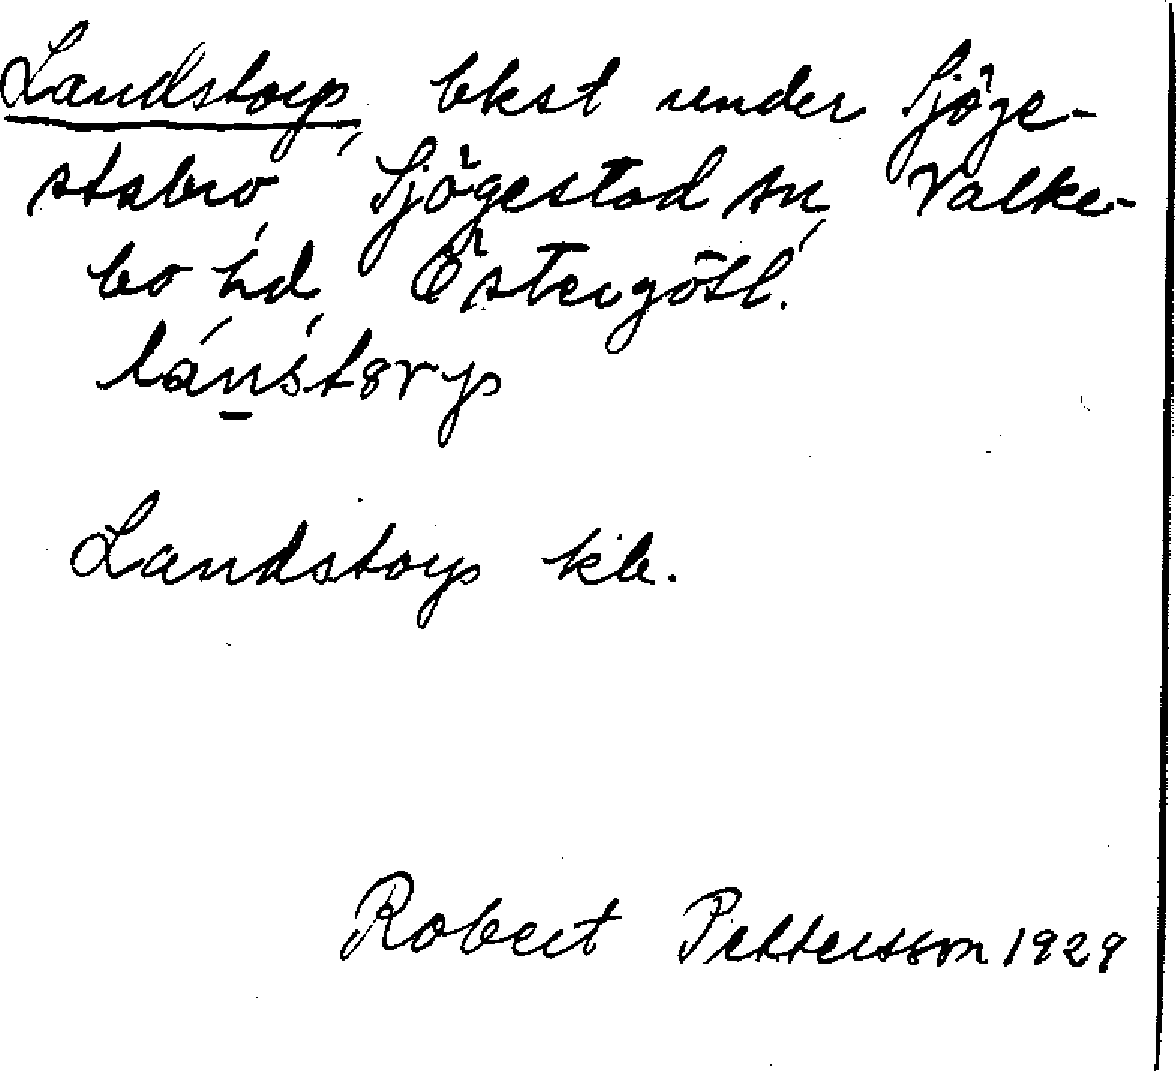 Landstorp, bkst under Sjöge-
stabro, Sjögestad sn, Valke-
bo hd, Östergötl.
lánstorp
Landstorp kb.
Robert Pettersson 1929